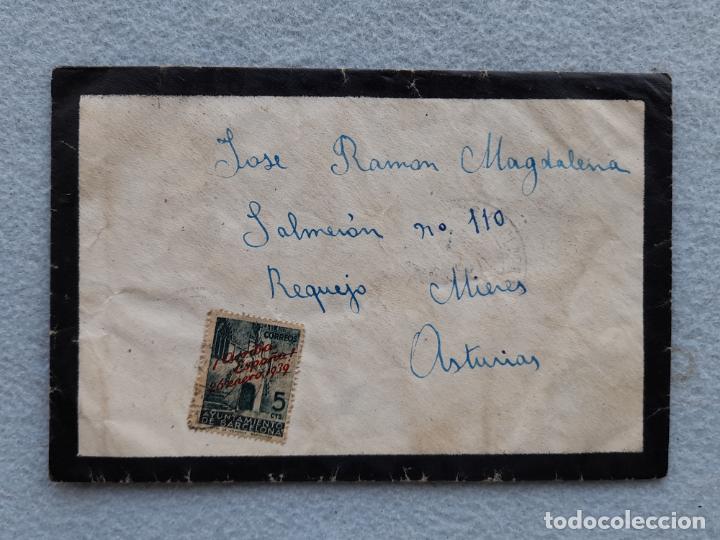 Jose Ramon Magdalena
Salmerón nº. 110
Requejo Mieres
Asturias
CORREOS
¡Arriba
España!
26 enero 1939
5
CTS
AYUNTAMIENTO
DE BARCELONA
todocoleccion.net